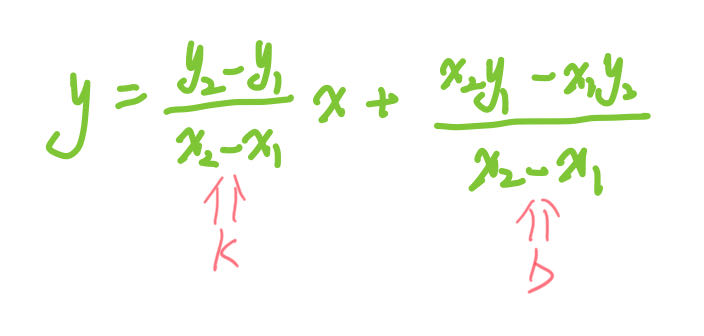 y = \frac{y_2 - y_1}{x_2 - x_1} x + \frac{x_2 y_1 - x_1 y_2}{x_2 - x_1}
⇑ ⇑
k b